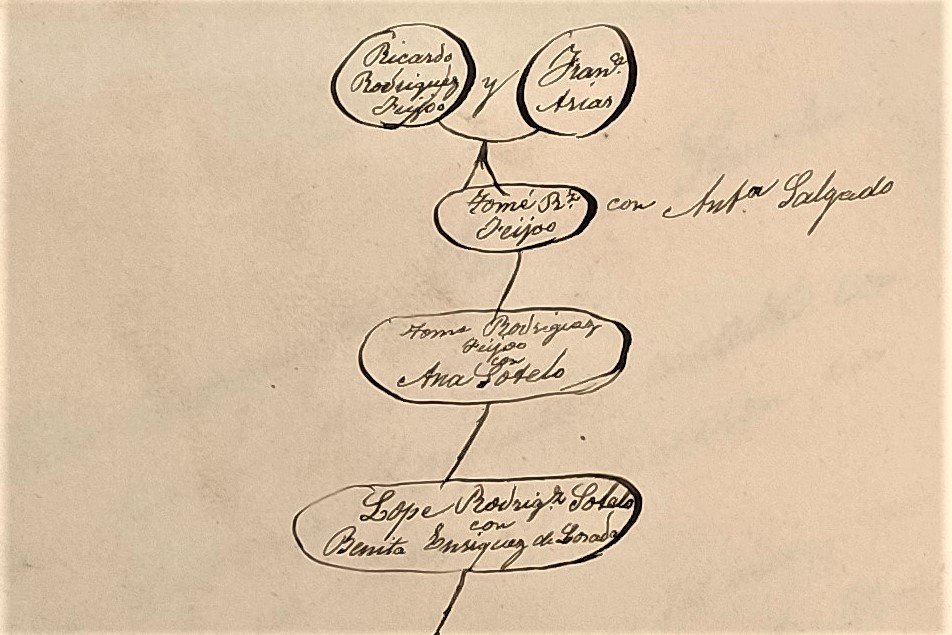 Ricardo
Rodriguez
Feijoo
y
Franca.
Arias
Tomé Rz.
Feijoo
con Anta Salgado
Tome Rodriguez
Feijoo
con
Ana Sotelo
Lope Rodrigz. Sotelo
con
Benita Enriquez de Losada